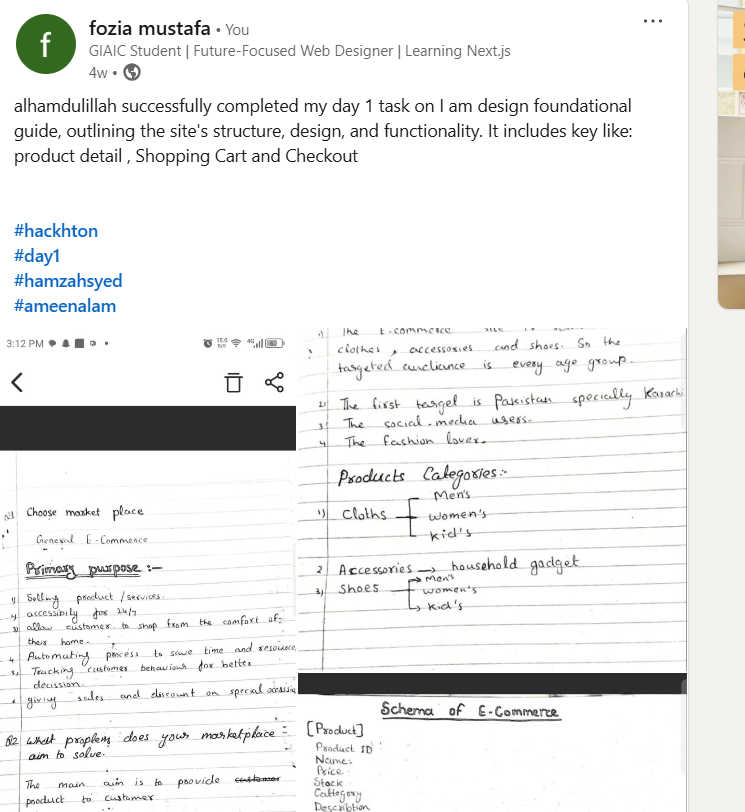 fozia mustafa • You
f
GIAIC Student | Future-Focused Web Designer | Learning Next.js
4w •
alhamdulillah successfully completed my day 1 task on I am design foundational
guide, outlining the site's structure, design, and functionality. It includes key like:
product detail , Shopping Cart and Checkout
#hackhton
#day1
#hamzahsyed
#ameenalam
3:12 PM
Choose market place
General E-Commerce
Primary purpose :-
1) Selling product / services.
accessibily for 24/7
allow customer to shop from the comfort of
their home.
4 Automating process to save time and resource
5, Tracking customer behaviour for better
decission.
giving sales and discount on special occasion
Q2 what proplem does your marketplace
aim to solve.
The main aim is to provide customer
product to customer
1) The E-commerce
clothes , accessories and shoes. So the
targeted audiance is every age group.
2) The first target is Pakistan specially Karachi
3 The social-media users.
4 The fashion lover.
Products Categories:-
1) Cloths
Men's
women's
kid's
2 Accessories → household gadget
3) Shoes
Men's
women's
kid's
Schema of E-Commerce
[Product]
Product ID
Name:
Price:
Stock
Category
Describtion